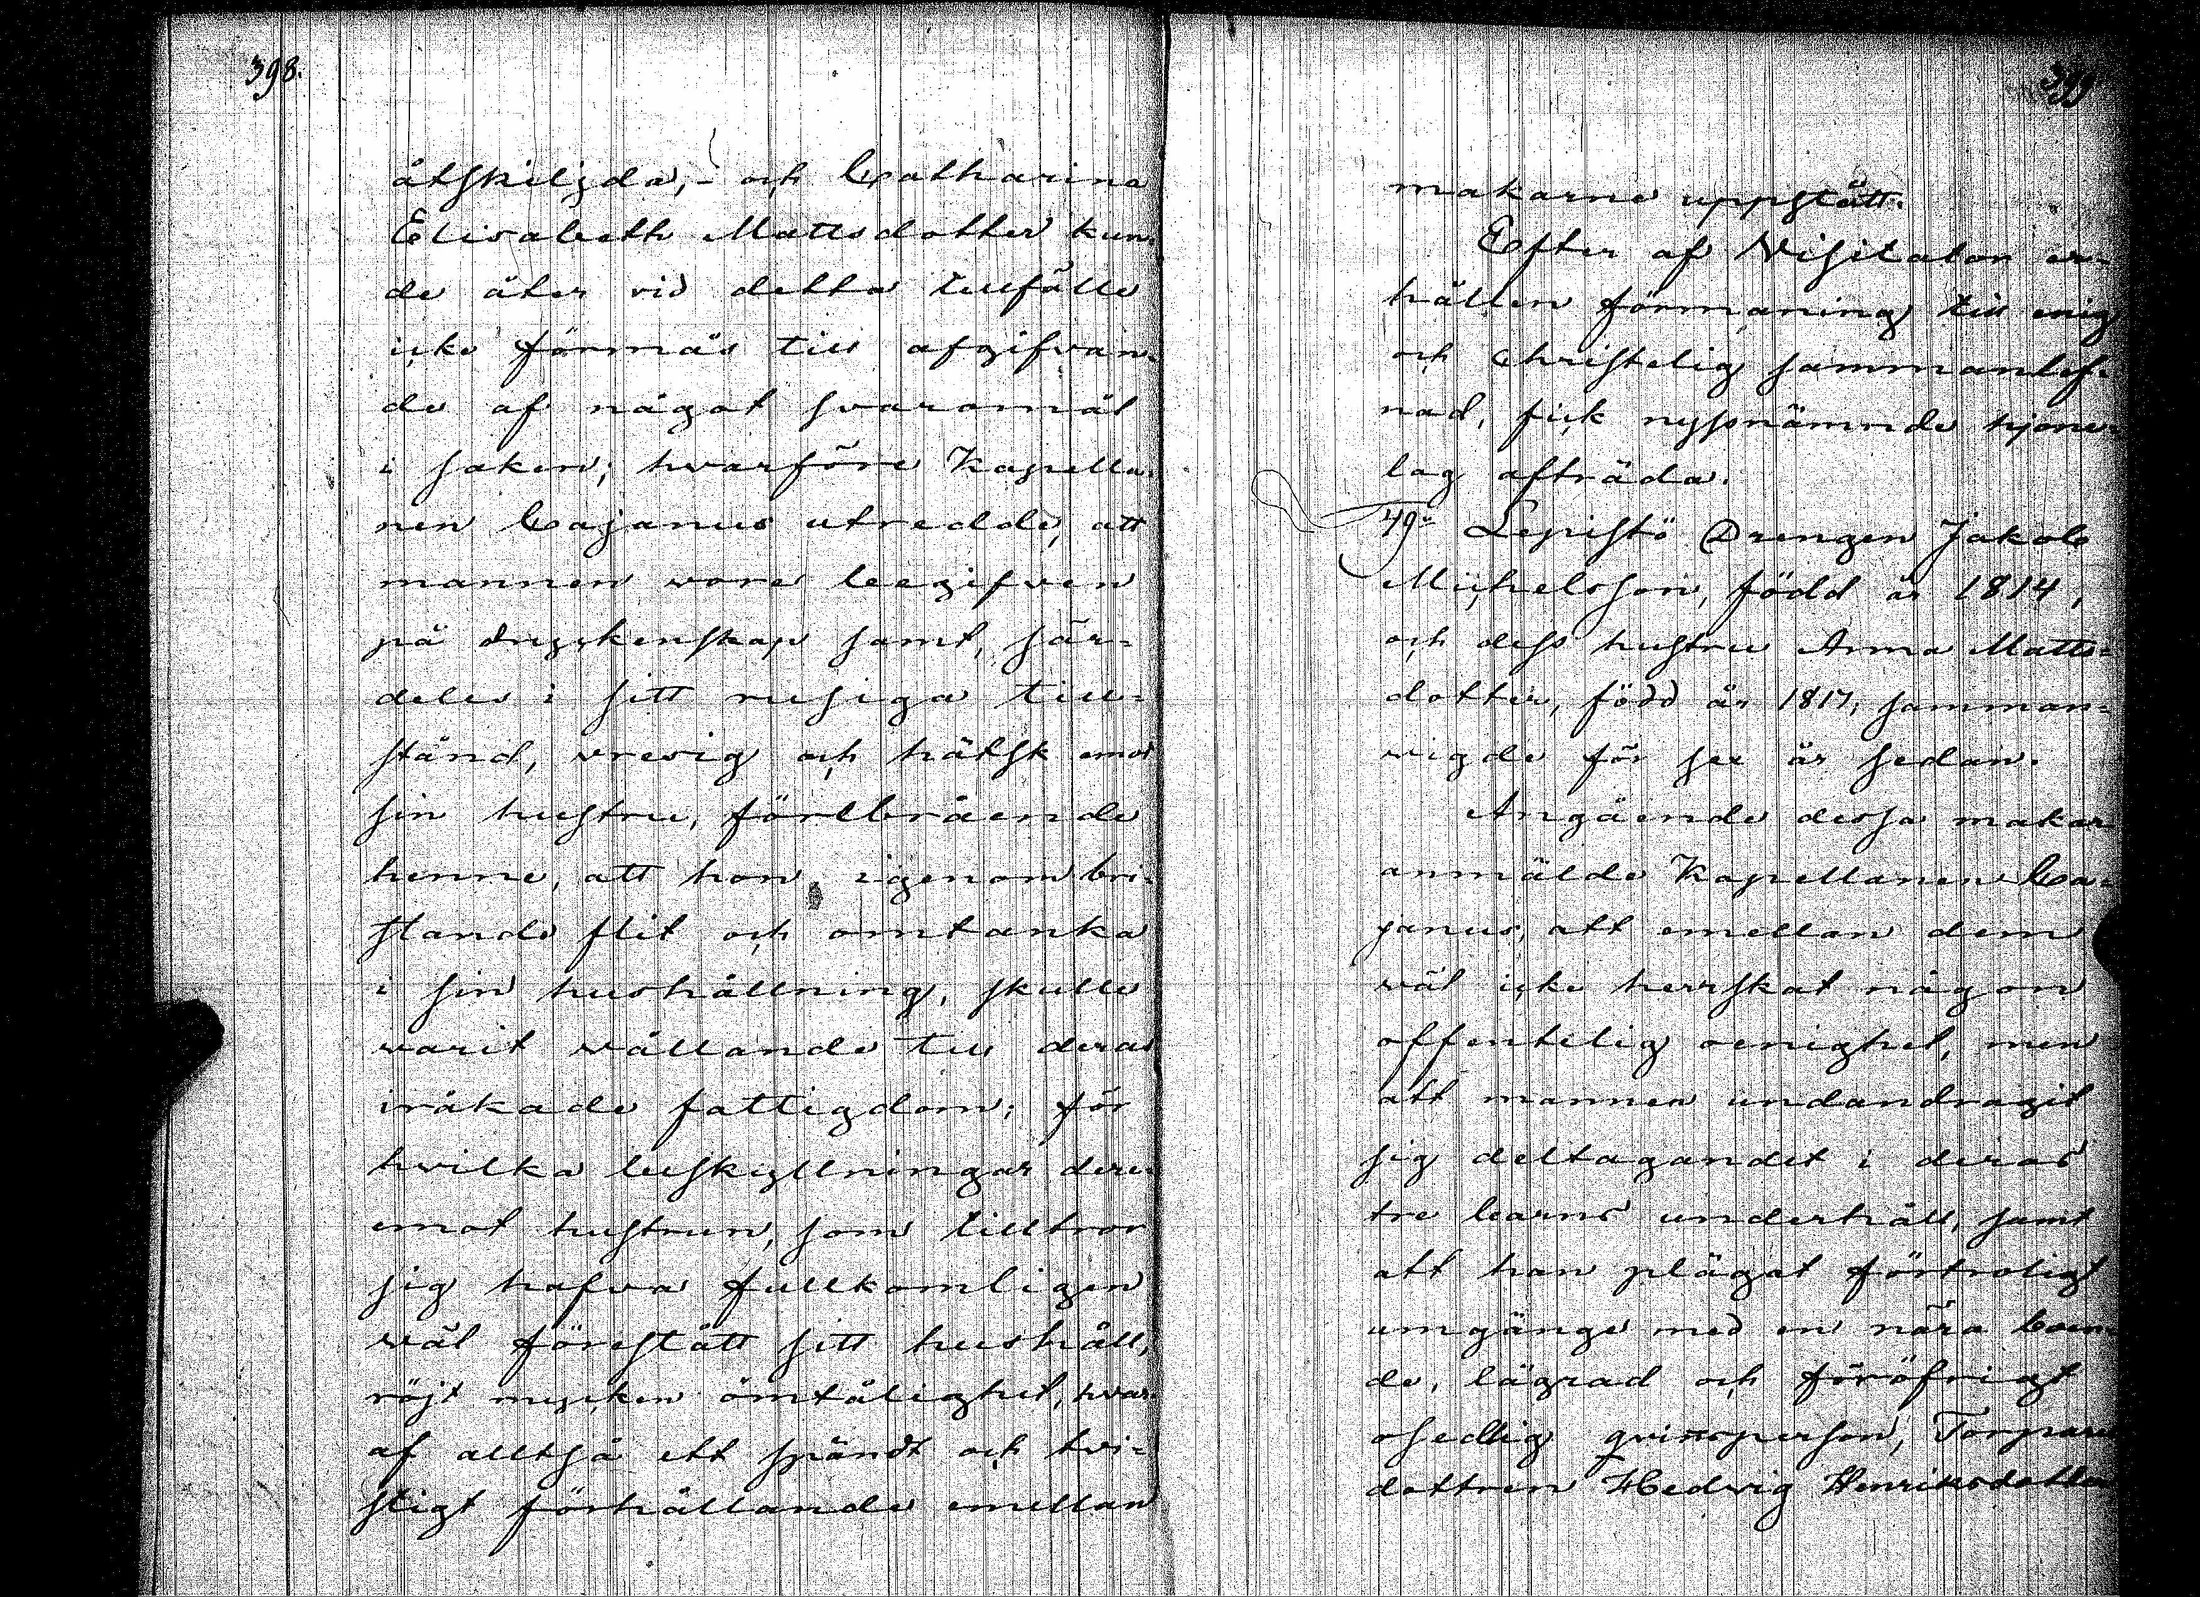 398.
åtskiljda,- och Catharina
Elisabeth Mattsdotter kun-
de åter vid detta tillfälle
icke förmås till afgifvan-
de af något svaromål
i saken; hvarföre Kapella-
nen Cajanus utredde, att
mannen vore begifven
på dryckenskap samt, sär-
deles i sitt rusiga till-
stånd, vresig och hätsk emot
sin hustru, förebrående
henne, att hon igenom bri-
stande flit och omtanka
i sin hushållning, skulle
varit vållande till deras
iråkade fattigdom; för
hvilka beskyllningar der-
emot hustrun, som tilltror
sig hafva fullkomligen
väl förestått sitt hushåll,
röjt mycken ömtålighet, hvar-
af alltså ett spändt och tvi-
stigt förhållande emellan
399
makarne uppstått.
Efter af Visitator er-
hållen förmaning till enig
och christelig sammanlef-
nad, fick nyssnämnde hjone-
lag afträda.
49:o Lepistö Drengen Jakob
Michelsson, född år 1814,
och dess hustru Anna Matts-
dotter, född år 1817, samman-
vigde för sex år sedan.
Angående dessa makar
anmälde Kapellanen Ca-
janus, att emellan dem
väl icke herrskat någon
offentelig oenighet, men
att mannen undandragit
sig deltagandet i deras
tre barns underhåll, samt
att han plägat förtroligt
umgänge med en nära boen-
de, lägrad och föröfrigt
osedlig qvinsperson, Torpare
dottren Hedvig Henriksdotter